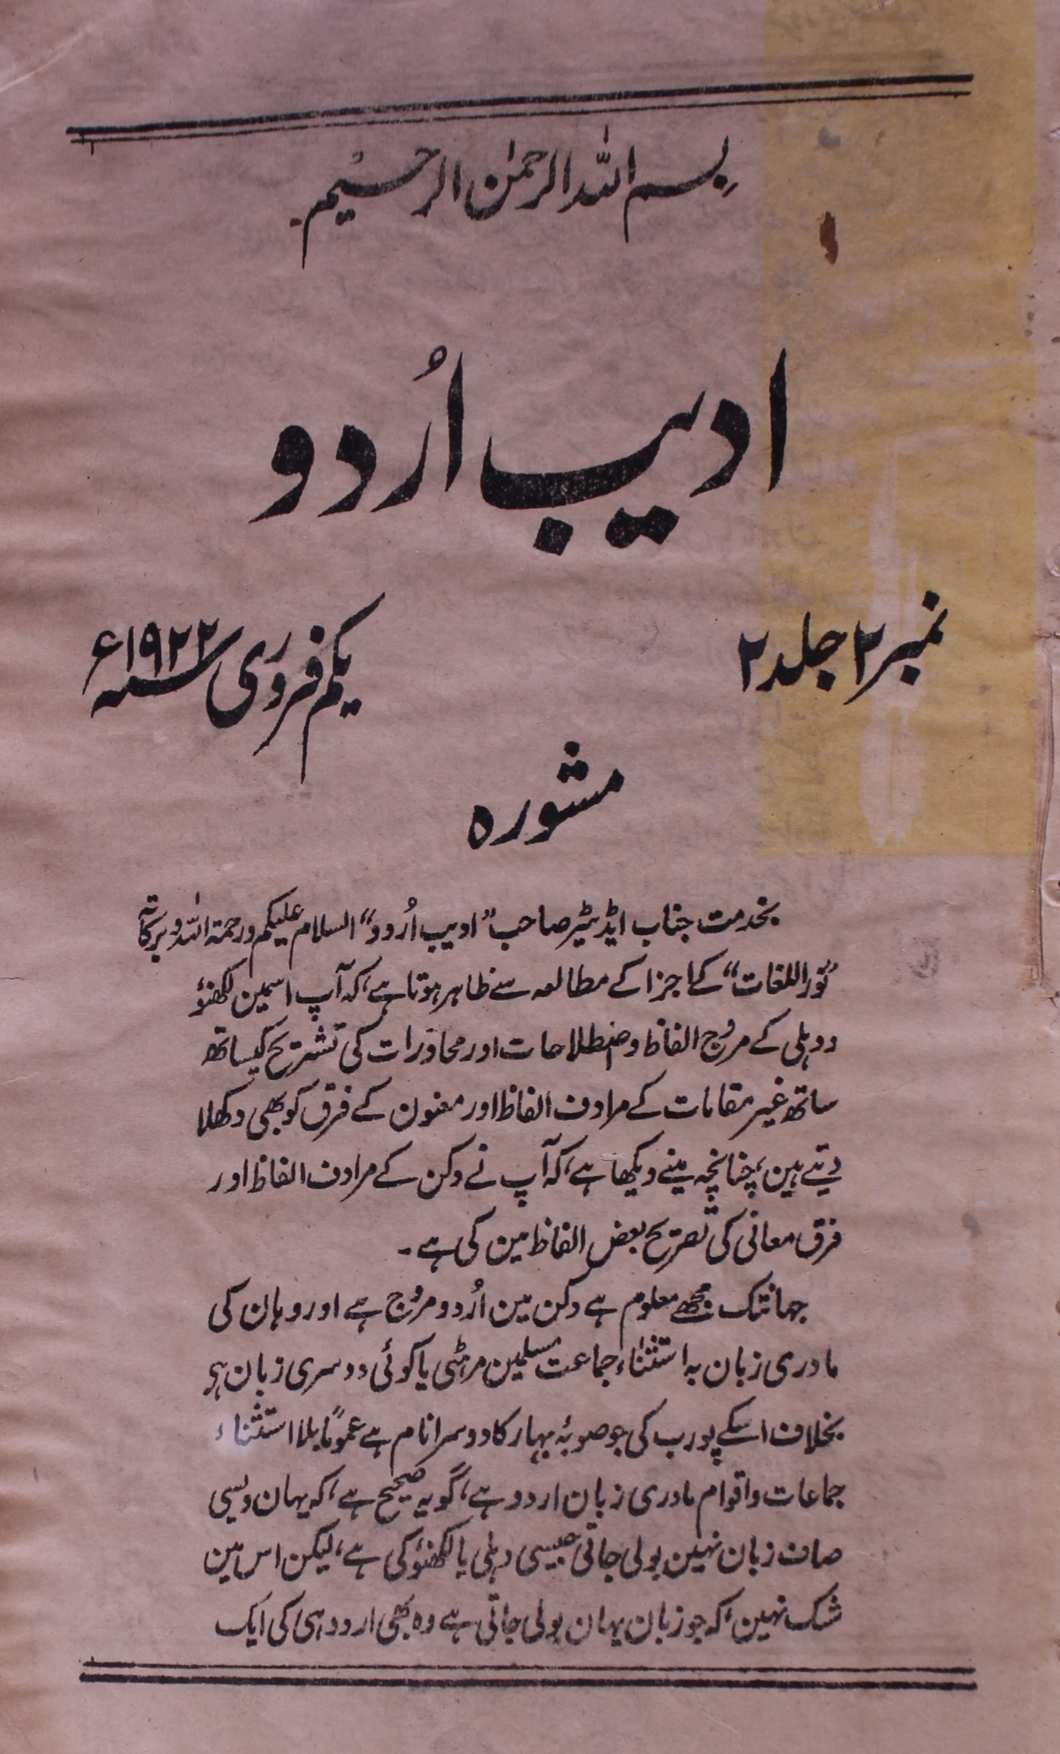 بسم اللہ الرحمٰن الرحیم
ادیب اُردو
نمبر ۲ جلد ۲
یکم فروری سنہ ۱۹۲۲ء
مشورہ
بخدمت جناب ایڈیٹر صاحب "ادیب اُردو" السلام علیکم ورحمۃ اللہ وبرکاتہ
"نور اللغات" کے اجزا کے مطالعہ سے ظاہر ہوتا ہے، کہ آپ اسمین لکھنؤ
ودہلی کے مروج الفاظ واصطلاحات اور محاورات کی تشریح کیساتھ
ساتھ غیر مقامات کے مرادف الفاظ اور معنون کے فرق کو بھی دکھلا
دیتے ہین، چنانچہ مینے دیکھا ہے، کہ آپ نے دکن کے مرادف الفاظ اور
فرق معانی کی تصریح بعض الفاظ مین کی ہے۔
جہانتک مجھے معلوم ہے دکن مین اُردو مروج ہے اور وہان کی
مادری زبان بہ استثناء جماعت مسلمین مرہٹی یا کوئی دوسری زبان ہو
بخلاف اسکے پورب کی جو صوبۂ بہار کا دوسرا نام ہے عموماً بلا استثناء
جماعات واقوام مادری زبان اردو ہے، گو یہ صحیح ہے، کہ یہان ویسی
صاف زبان نہین بولی جاتی جیسی دہلی یا لکھنؤ کی ہے، لیکن اس مین
شک نہین، کہ جو زبان یہان بولی جاتی ہے وہ بھی اردو ہی کی ایک